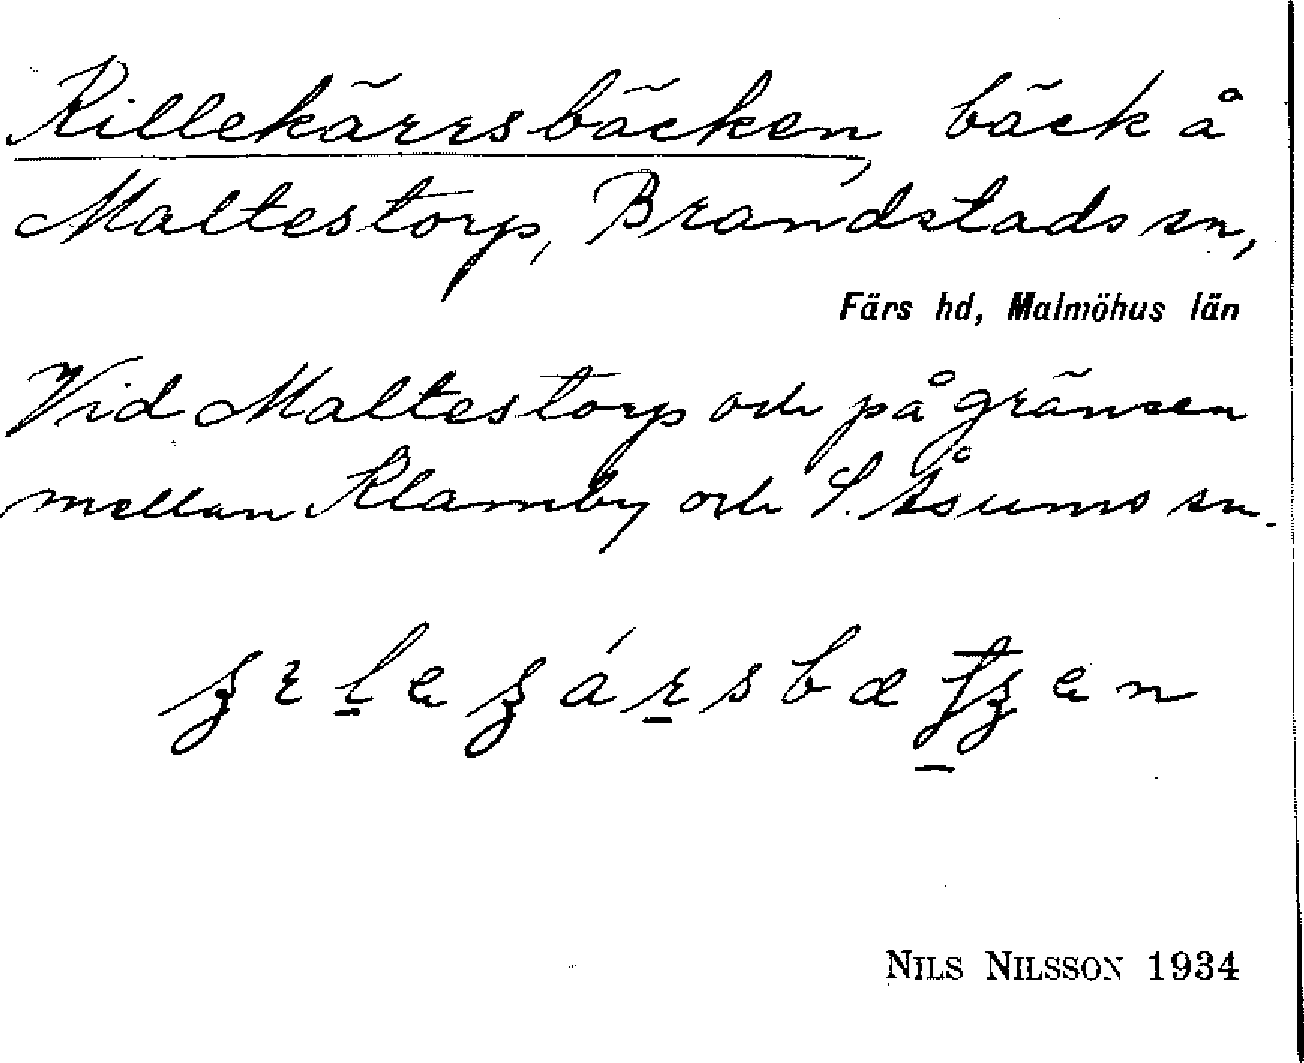 Killekärrsbäcken, bäck å
Maltestorp, Brandstads sn,
Färs hd, Malmöhus län
Vid Maltestorp och på gränsen
mellan Klamby och S. Åsums sn.
NILS NILSSON 1934